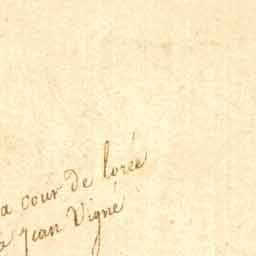 a cour de lorée
a jean Vigné